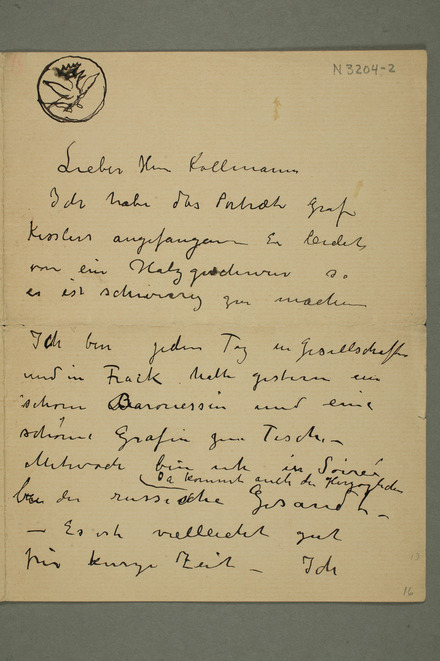 N 3204-2
Lieber Herr Kollmann
Ich habe das Portræt Graf
Kesslers angefangen Er leidet
von ein so
es ist schwierig zu machen
Ich bin jeden Tag in Gesellschaften
und in Frack hatte gestern ein
schöne Baronessin und eine
schöne Grafin zu Tisch –
Mitwoch bin ich in Soirée
Da kommt auch der
bei der russische Gesandt –
– Es ist vielleicht gut
für kurze Zeit – Ich
16